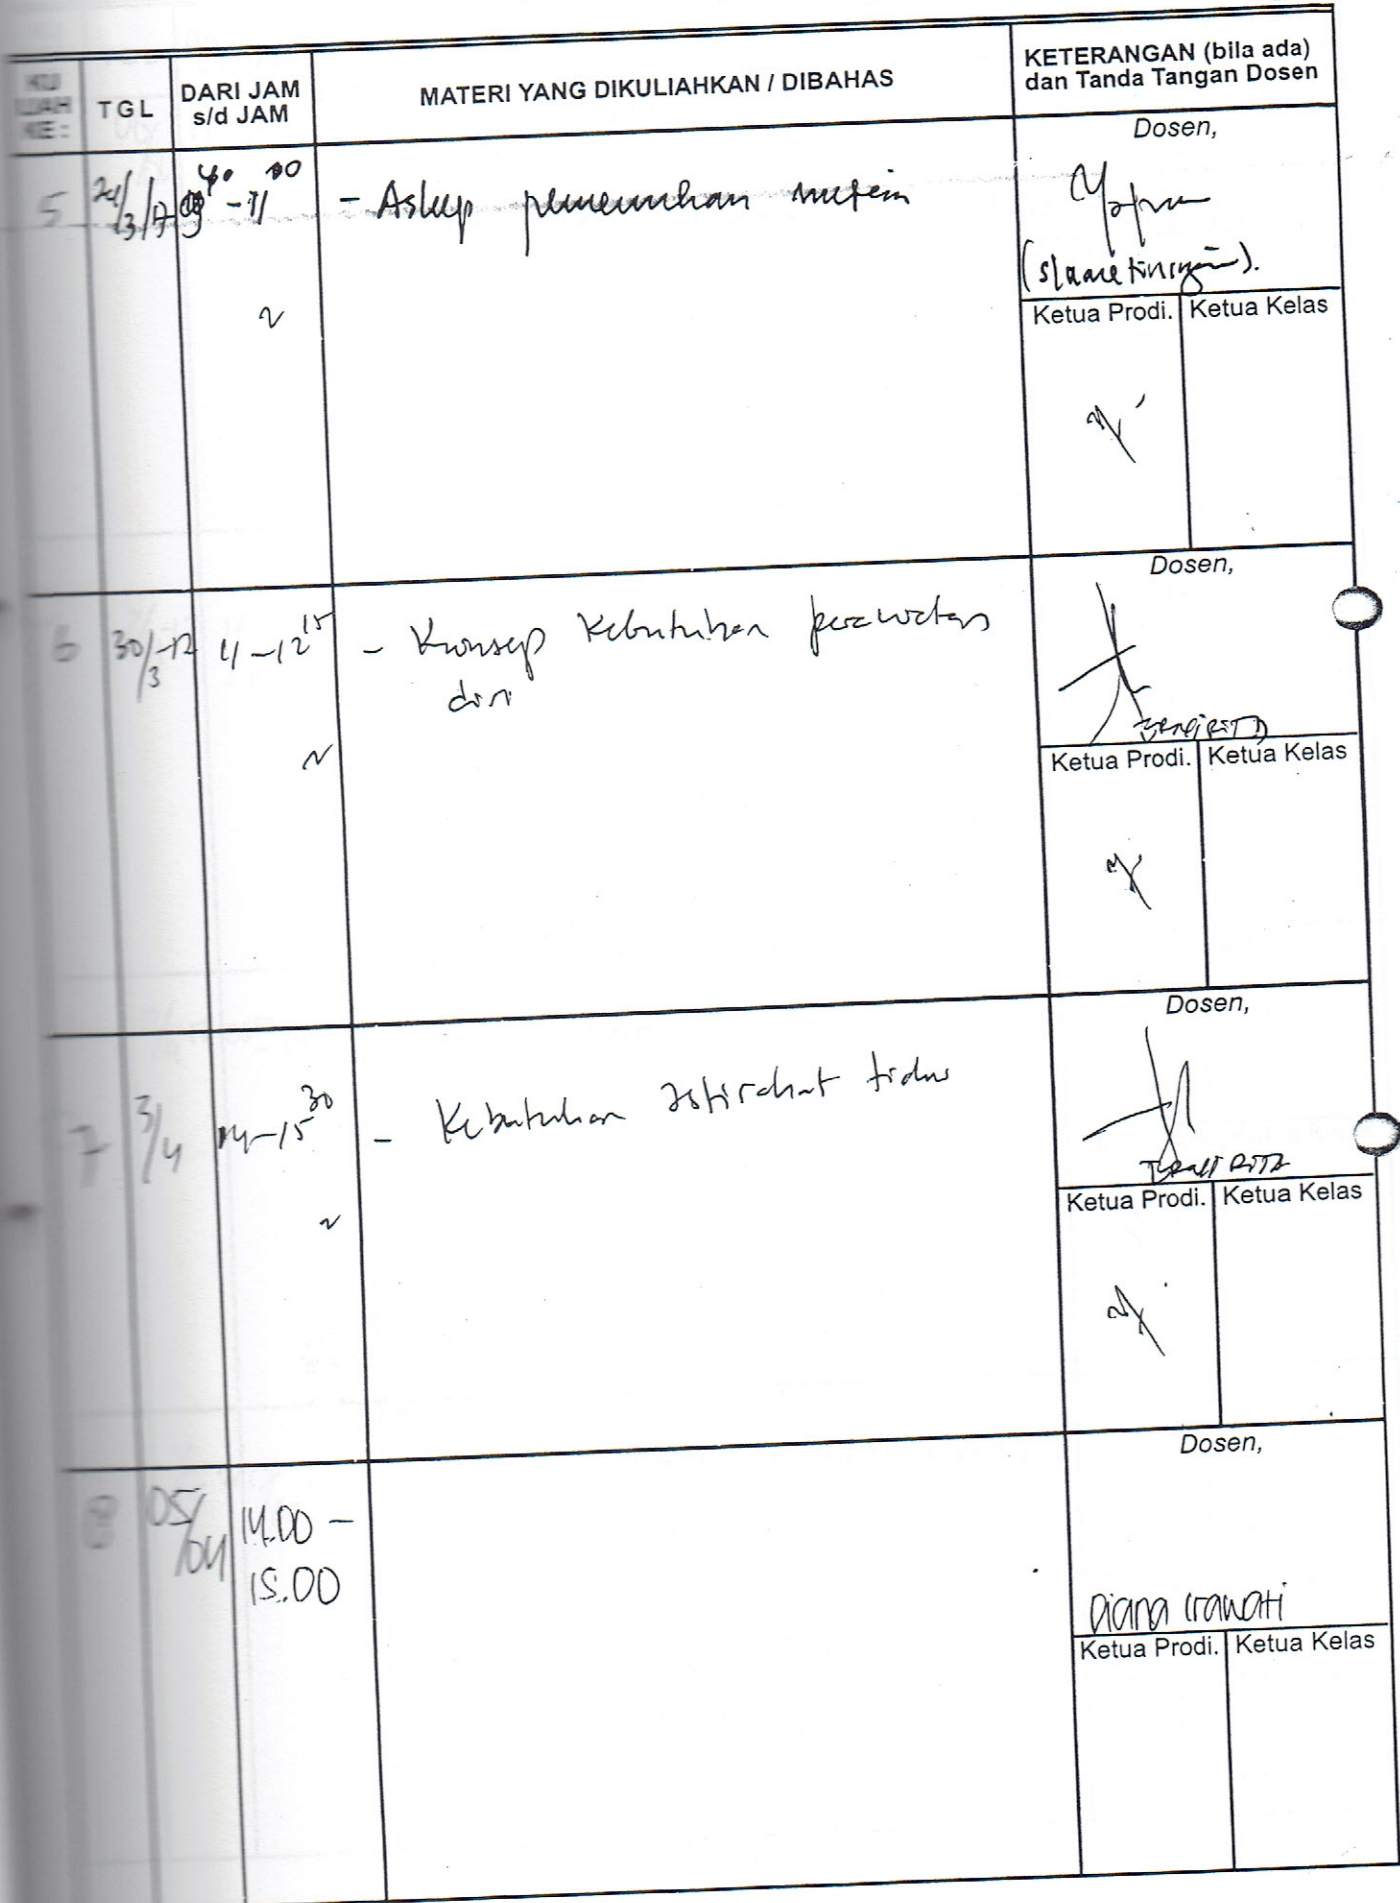 KU
LIAH
KE :
TGL
DARI JAM
s/d JAM
MATERI YANG DIKULIAHKAN / DIBAHAS
KETERANGAN (bila ada)
dan Tanda Tangan Dosen
5
24/3/17
09 40 - 11 00
- Askep pemenuhan nutrisi
Dosen,
Ketua Prodi.
Ketua Kelas
6
30/3-17
11 - 12 15
- Konsep Kebutuhan perawatan
diri
Dosen,
Ketua Prodi.
Ketua Kelas
7
3/4
14 - 15 30
- Kebutuhan Istirahat tidur
Dosen,
Ketua Prodi.
Ketua Kelas
8
05/04
14.00 -
15.00
Dosen,
Diana Irawati
Ketua Prodi.
Ketua Kelas